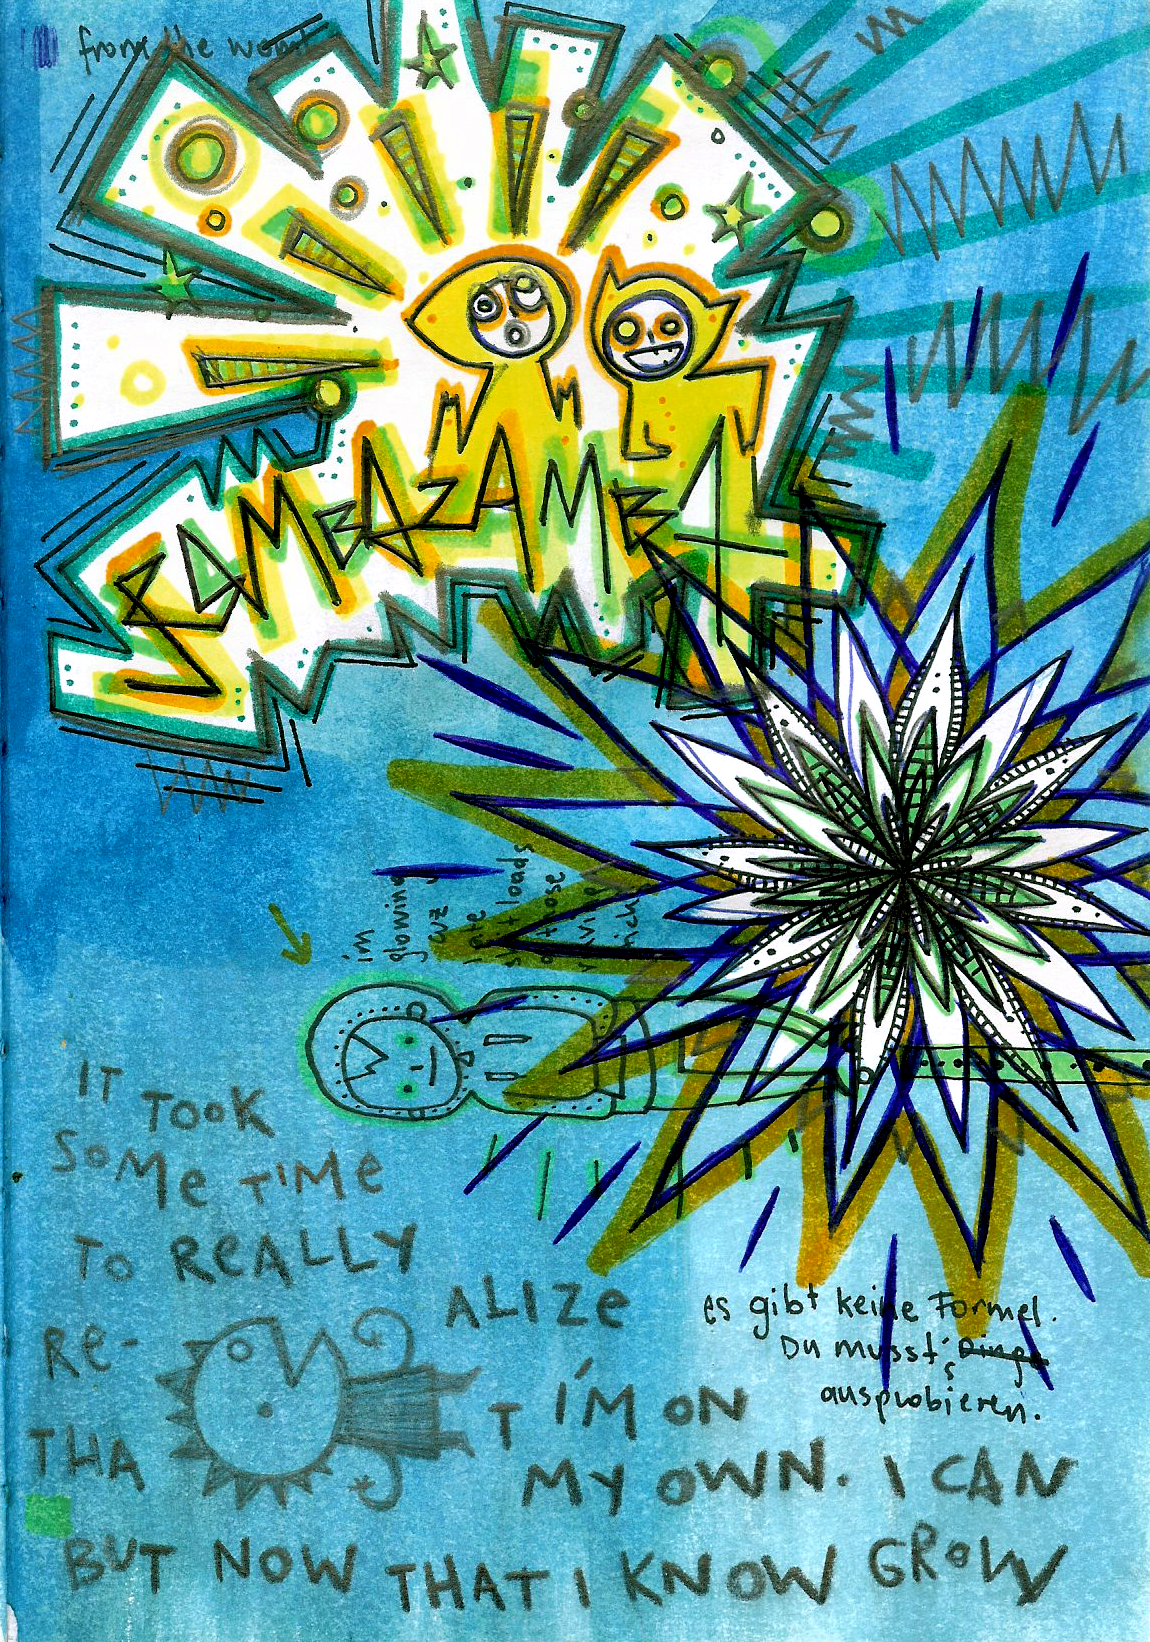 from the womb
SAMBAZAMBA
im
glowing
cuz
i ate
shit loads
of those
IT TOOK
SOME TIME
TO REALLY
RE- ALIZE
THA T I'M ON
MY OWN. I CAN
BUT NOW THAT I KNOW GROW
es gibt keine Formel.
Du musst's Dinge
ausprobieren.